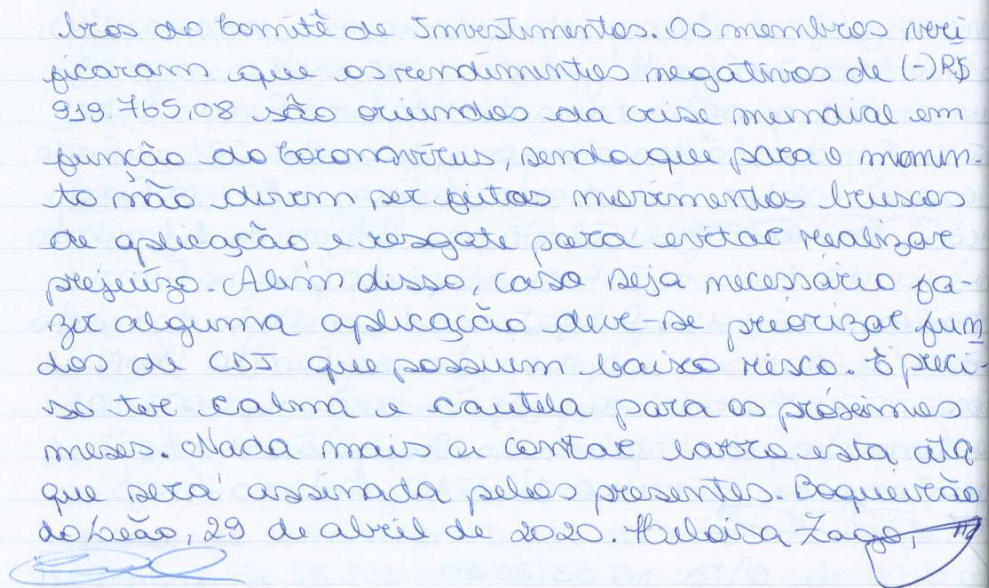 bros do Comitê de Investimentos. Os membros veri
ficaram que os rendimentos negativos de (-)R$
919.765,08 são oriundos da crise mundial em
função do Coronavírus, sendo que para o momen-
to não devem ser feitos movimentos bruscos
de aplicação e resgate para evitar realizar
prejuízo. Além disso, caso seja necessário fa-
zer alguma aplicação deve-se priorizar fun
dos de CDI que possuem baixo risco. É preci-
so ter calma e cautela para os próximos
meses. Nada mais a contar lavro esta ata
que será assinada pelos presentes. Boqueirão
do Leão, 29 de abril de 2020. Heloisa Zago,